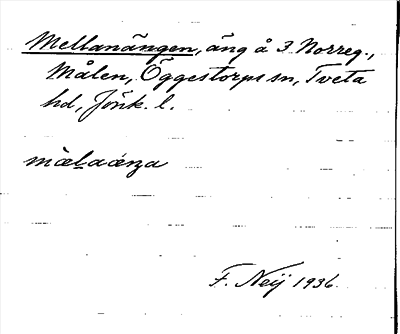 Mellanängen, äng å 3 Norreg.,
Målen, Öggestorps sn, Tveta
hd, Jönk. l.
mèḻaáŋa
F. Neij 1936.